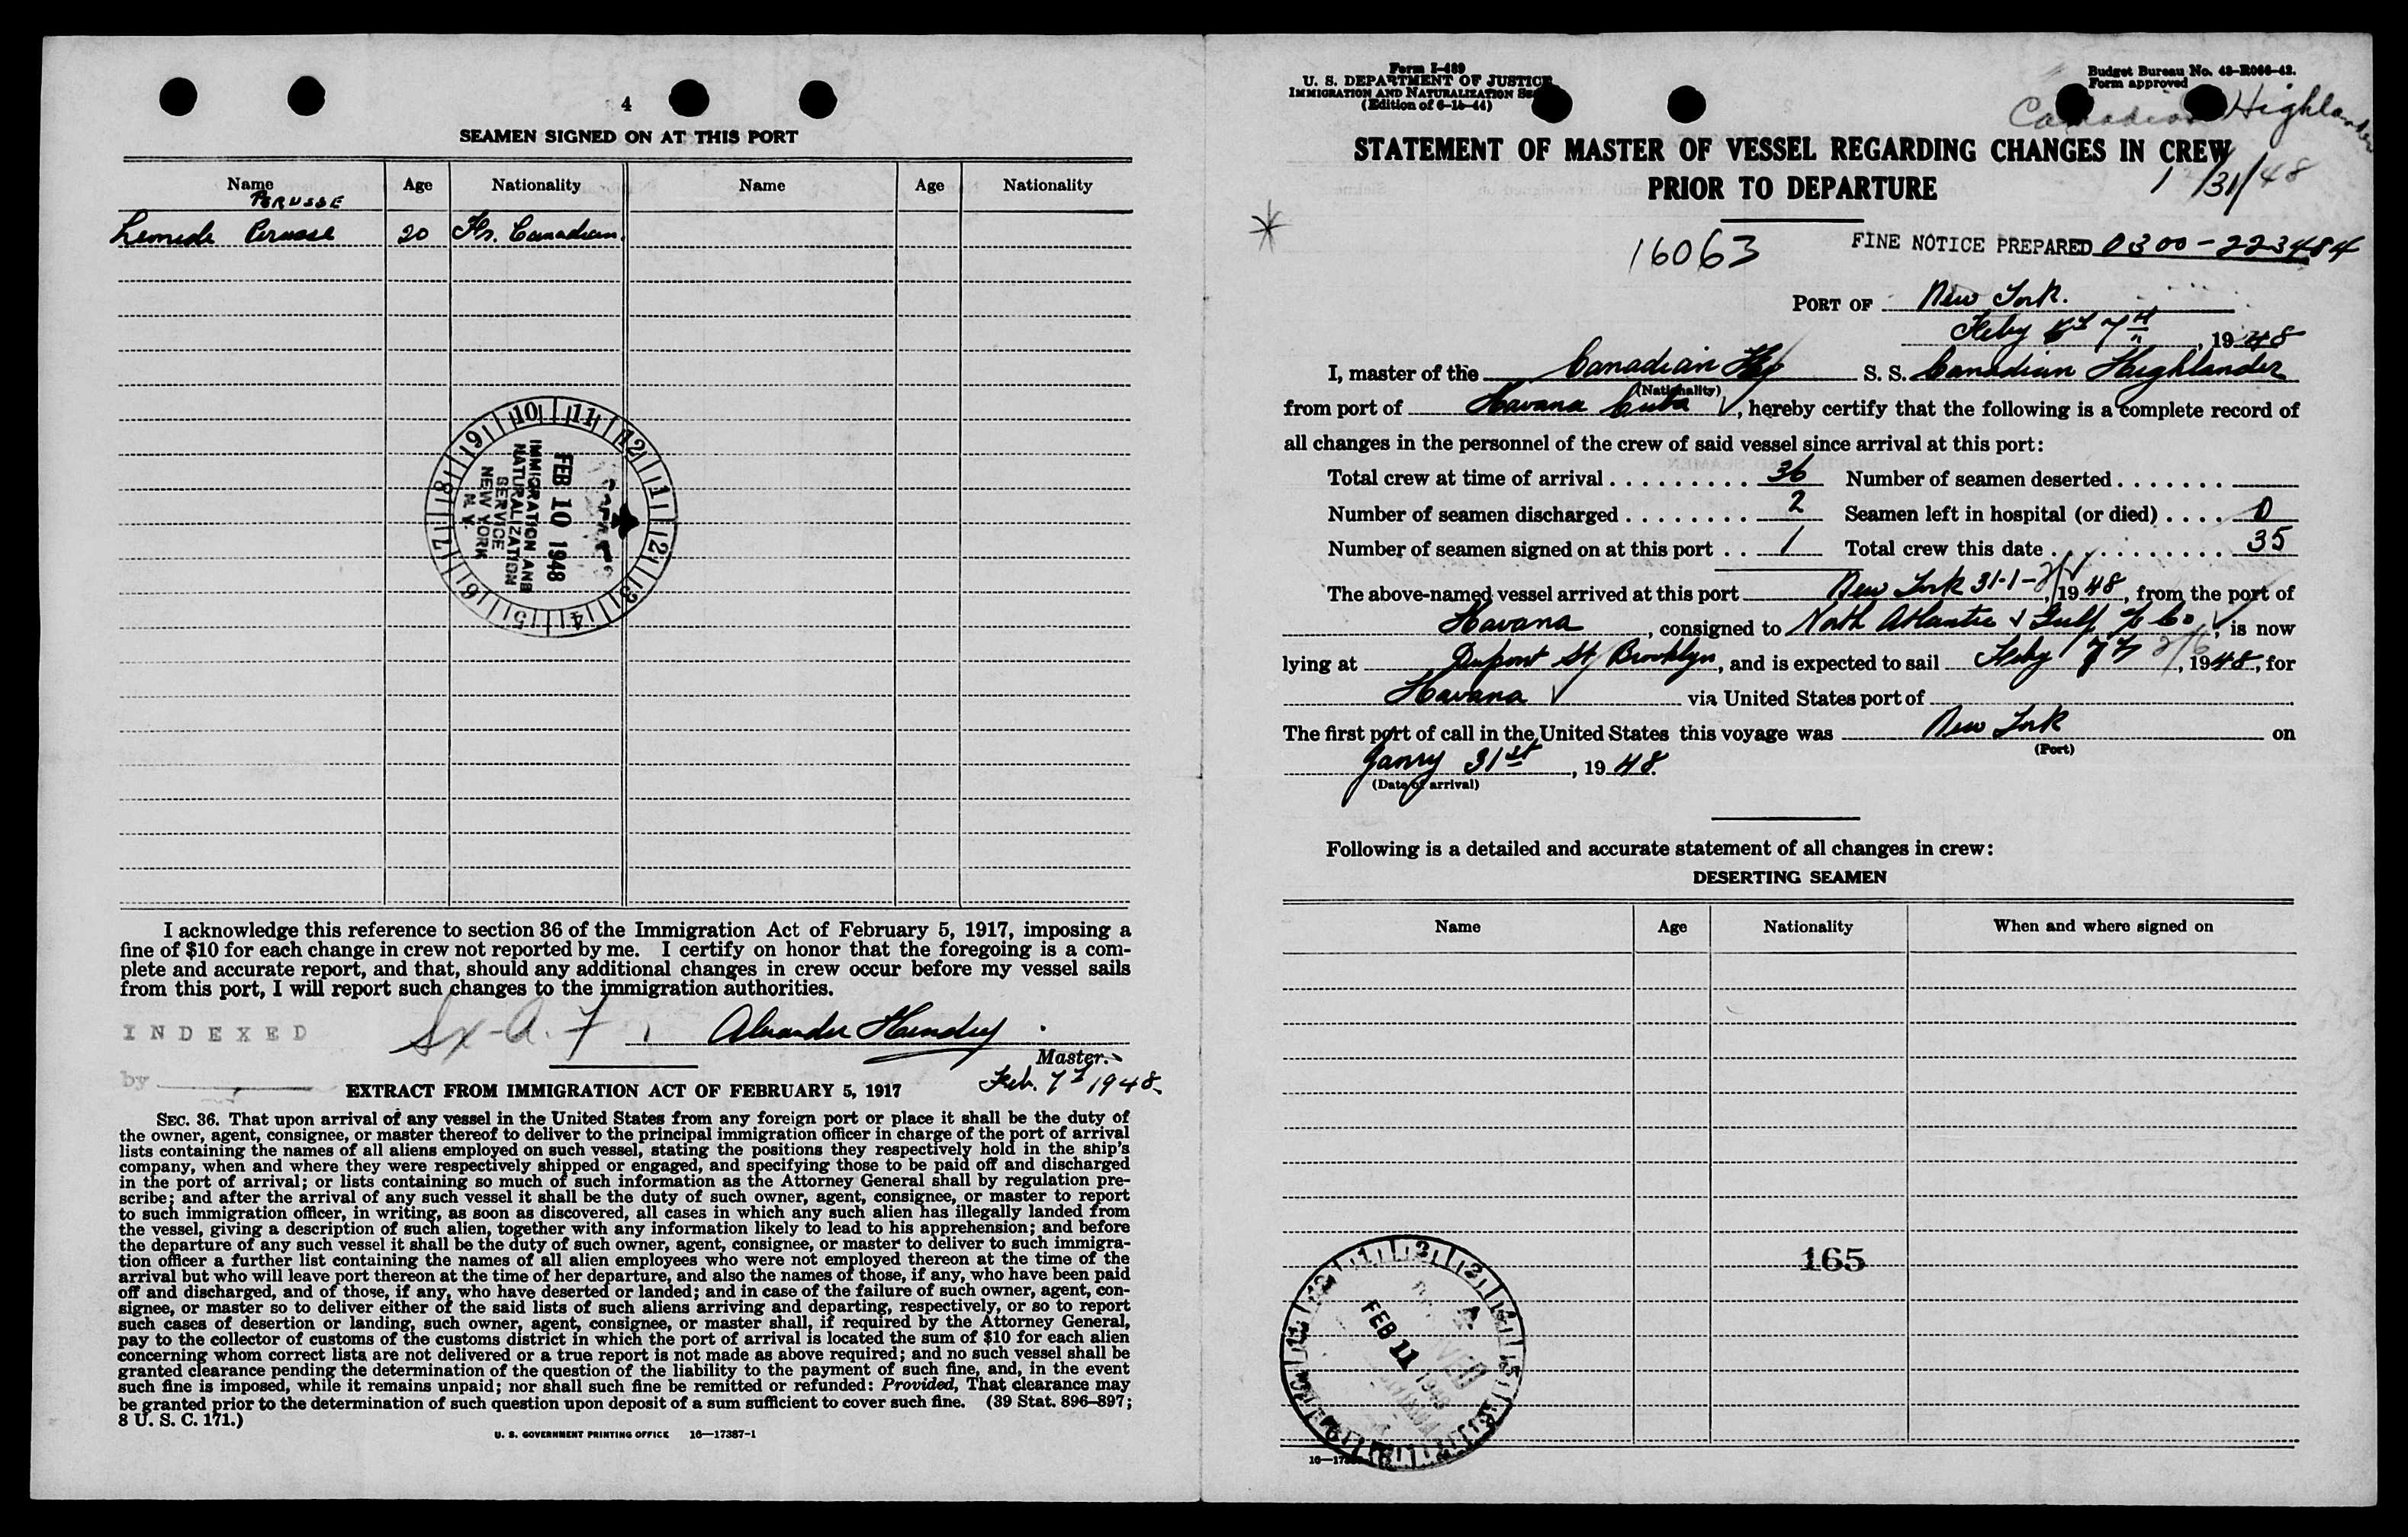 4
SEAMEN SIGNED ON AT THIS PORT
Name Age Nationality Name Age Nationality
PERUSSE
Perusse 20 Fr. Canadian
10 11 12 1 2 3 4 5 6 7 8 9
IMMIGRATION AND
NATURALIZATION
SERVICE
NEW YORK
N. Y.
FEB 10 1948
I acknowledge this reference to section 36 of the Immigration Act of February 5, 1917, imposing a
fine of $10 for each change in crew not reported by me. I certify on honor that the foregoing is a com-
plete and accurate report, and that, should any additional changes in crew occur before my vessel sails
from this port, I will report such changes to the immigration authorities.
INDEXED
by
Alexander
Master.
Feb. 7th 1948
EXTRACT FROM IMMIGRATION ACT OF FEBRUARY 5, 1917
SEC. 36. That upon arrival of any vessel in the United States from any foreign port or place it shall be the duty of
the owner, agent, consignee, or master thereof to deliver to the principal immigration officer in charge of the port of arrival
lists containing the names of all aliens employed on such vessel, stating the positions they respectively hold in the ship's
company, when and where they were respectively shipped or engaged, and specifying those to be paid off and discharged
in the port of arrival; or lists containing so much of such information as the Attorney General shall by regulation pre-
scribe; and after the arrival of any such vessel it shall be the duty of such owner, agent, consignee, or master to report
to such immigration officer, in writing, as soon as discovered, all cases in which any such alien has illegally landed from
the vessel, giving a description of such alien, together with any information likely to lead to his apprehension; and before
the departure of any such vessel it shall be the duty of such owner, agent, consignee, or master to deliver to such immigra-
tion officer a further list containing the names of all alien employees who were not employed thereon at the time of the
arrival but who will leave port thereon at the time of her departure, and also the names of those, if any, who have been paid
off and discharged, and of those, if any, who have deserted or landed; and in case of the failure of such owner, agent, con-
signee, or master so to deliver either of the said lists of such aliens arriving and departing, respectively, or so to report
such cases of desertion or landing, such owner, agent, consignee, or master shall, if required by the Attorney General,
pay to the collector of customs of the customs district in which the port of arrival is located the sum of $10 for each alien
concerning whom correct lists are not delivered or a true report is not made as above required; and no such vessel shall be
granted clearance pending the determination of the question of the liability to the payment of such fine, and, in the event
such fine is imposed, while it remains unpaid; nor shall such fine be remitted or refunded: Provided, That clearance may
be granted prior to the determination of such question upon deposit of a sum sufficient to cover such fine. (39 Stat. 896-897;
8 U. S. C. 171.)
U. S. GOVERNMENT PRINTING OFFICE 16—17387-1
Form I-489
U. S. DEPARTMENT OF JUSTICE
IMMIGRATION AND NATURALIZATION
(Edition of 6-15-44)
Budget Bureau No. 43-R066-42.
Form approved
Canadian Highlander
1/31/48
STATEMENT OF MASTER OF VESSEL REGARDING CHANGES IN CREW
PRIOR TO DEPARTURE
16063 FINE NOTICE PREPARED 0300-223484
PORT OF New York.
Feby 7th, 1948
I, master of the Canadian S. S. Canadian Highlander
(Nationality)
from port of Havana Cuba, hereby certify that the following is a complete record of
all changes in the personnel of the crew of said vessel since arrival at this port:
Total crew at time of arrival 36 Number of seamen deserted
Number of seamen discharged 2 Seamen left in hospital (or died) 0
Number of seamen signed on at this port 1 Total crew this date 35
The above-named vessel arrived at this port New York 31-1-, 1948, from the port of
Havana, consigned to North Atlantic & Gulf Co, is now
lying at Dupont St Brooklyn, and is expected to sail Feby 7th, 1948, for
Havana via United States port of
The first port of call in the United States this voyage was New York on
(Port)
Janry 31st, 1948
(Date of arrival)
Following is a detailed and accurate statement of all changes in crew:
DESERTING SEAMEN
Name Age Nationality When and where signed on
165
FEB 11 1948